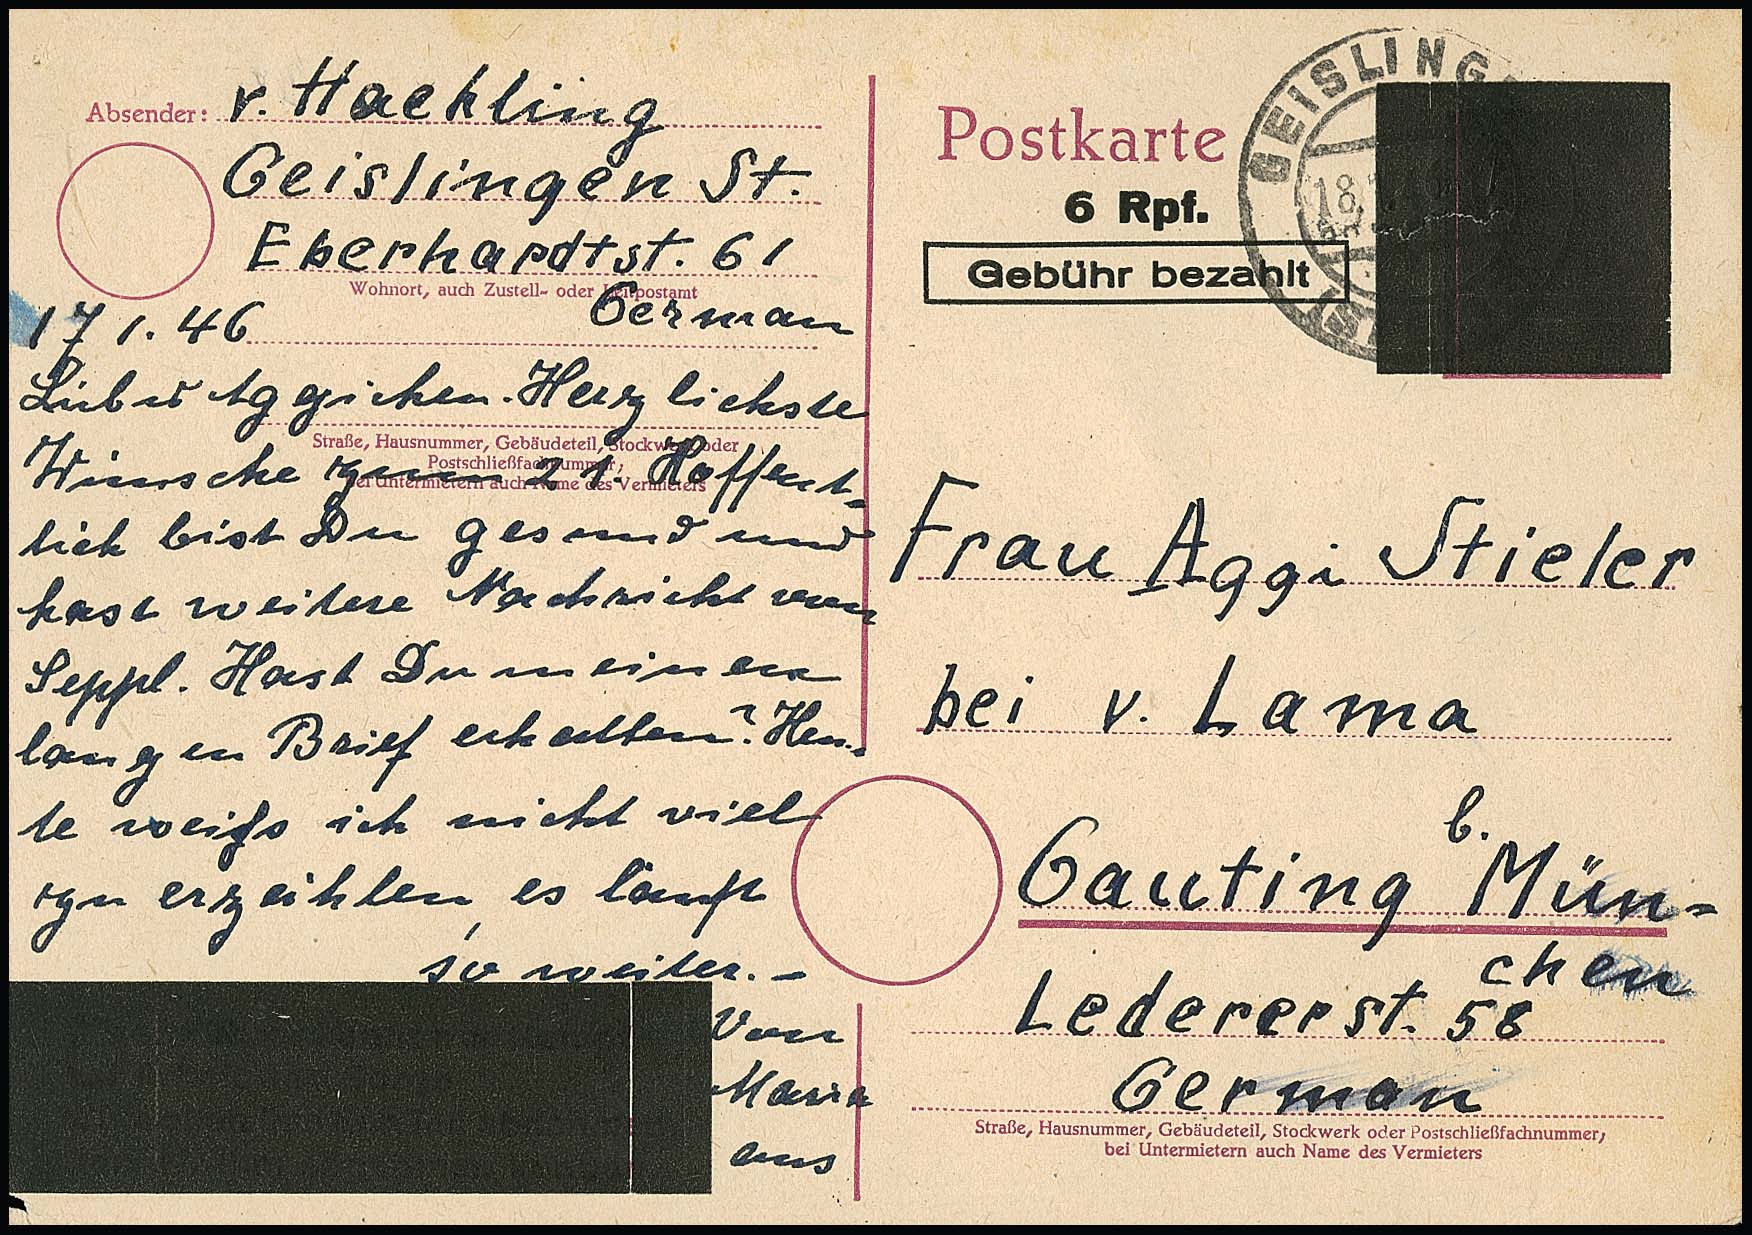 Absender: v. Haekling
Geislingen St.
Eberhardtst. 61
Wohnort, auch Zustell- oder Leitpostamt
German
17 1. 46
Liebes Aggichen. Herzlichste
Straße, Hausnummer, Gebäudeteil, Stockwerk oder
Postschließfachnummer;
bei Untermietern auch Name des Vermieters
Wünsche zum 21. Hoffent-
lich bist Du gesund und
hast weitere Nachricht vom
Seppl. Hast Du meinen
langen Brief erhalten? Heu-
te weiß ich nicht viel
zu erzählen, es läuft
so weiter. –
Von
Maria
aus
Postkarte
6 Rpf.
Gebühr bezahlt
GEISLING
18.
Frau Aggi Stieler
bei v. Lama
Gauting b. Mün-
chen
Ledererst. 58
German
Straße, Hausnummer, Gebäudeteil, Stockwerk oder Postschließfachnummer;
bei Untermietern auch Name des Vermieters